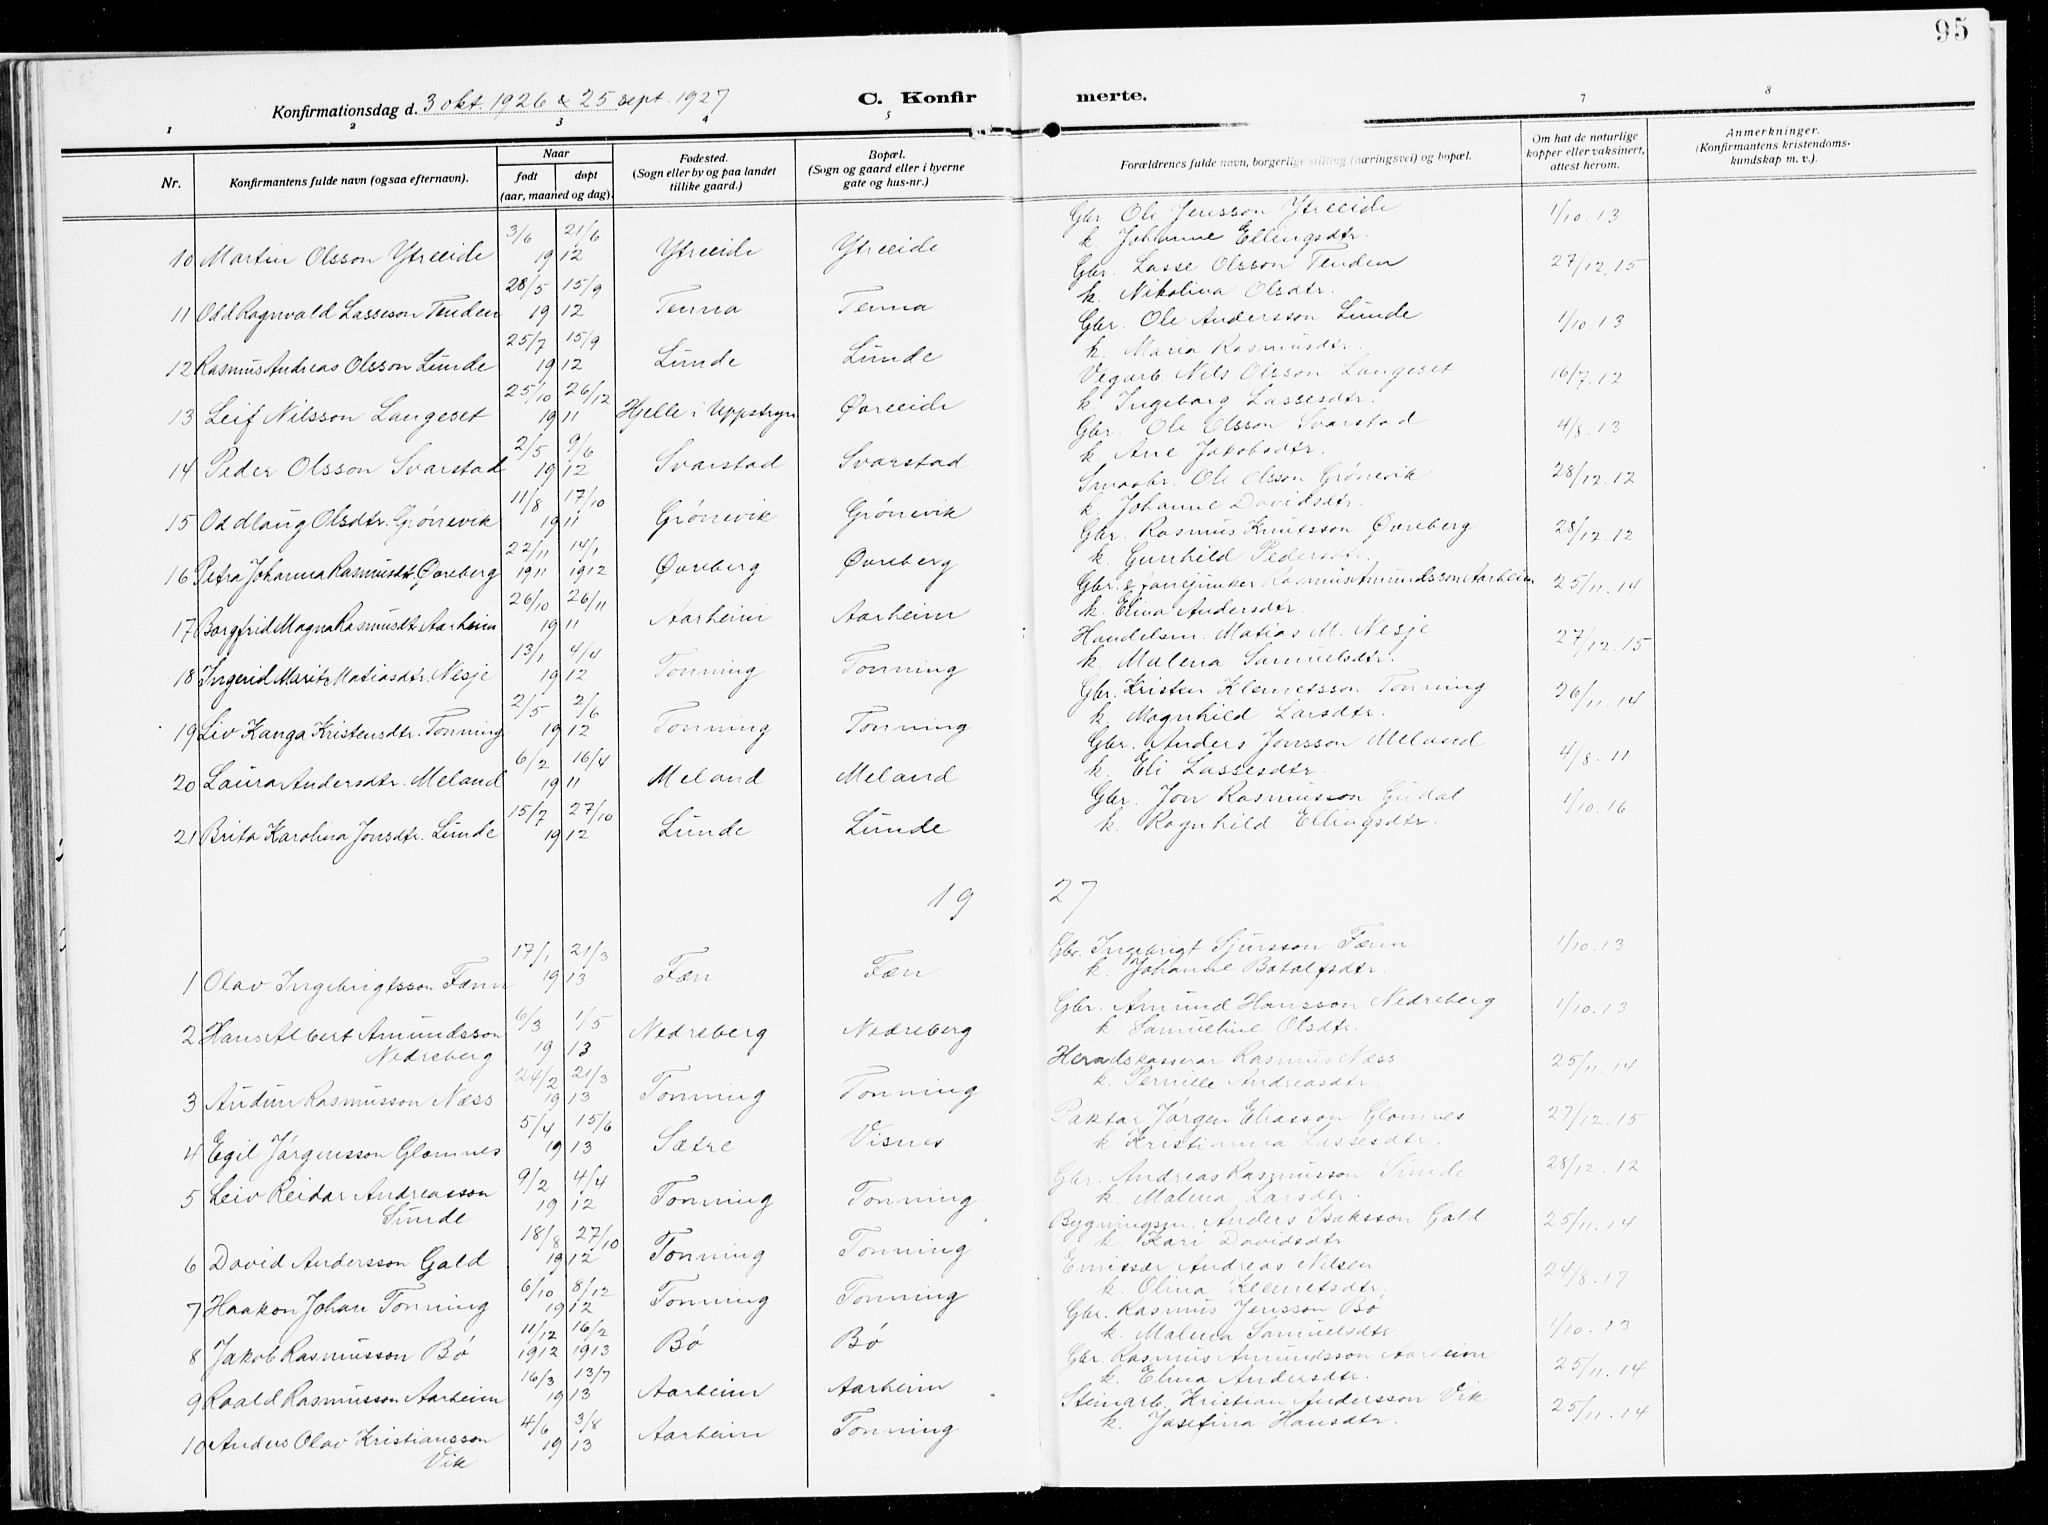 95
Konfirmationsdag d. 3 okt. 1926 & 25 sept. 1927 C. Konfir merte.
1 2 3 4 5 7 8
Nr. Konfirmantens fulde navn (ogsaa efternavn). Naar født døpt (aar, maaned og dag). Fødested. (Sogn eller by og paa landet tillike gaard.) Bopæl. (Sogn og gaard eller i byerne gate og hus-nr.) Forældrenes fulde navn, borgerlige stilling (næringsvei) og bopæl. Om hat de naturlige kopper eller vaksinert, attest herom. Anmerkninger. (Konfirmantens kristendomskundskap m. v.).
10 Martin Olsson Ytreeide 3/6 1912 21/6 Ytreeide Ytreeide Gbr Ole Jensson Ytreeide 1/10.13
k. Johanne Ellingsdtr.
11 Odd Ragnvald Lasseson Tenden 28/5 1912 15/9 Tenna Tenna Gbr. Lasse Olsson Tenden 27/12.15
k. Nikolina Olsdtr.
12 Rasmus Andreas Olsson Lunde 25/7 1912 15/9 Lunde Lunde Gbr. Ole Andersson Lunde 1/10.13
k. Maria Rasmusdtr.
13 Leif Nilsson Langeset 25/10 1911 26/12 Hjelle i Uppstryn Øvreeide Vegarb. Nils Olsson Langeset 16/7.12
k. Ingeborg Lassesdtr.
14 Peder Olsson Svarstad 2/5 1912 9/6 Svarstad Svarstad Gbr. Ole Olsson Svarstad 4/8.13
k. Ane Jakobsdtr.
15 Oddlaug Olsdtr. Grønevik 11/8 1911 17/10 Grønevik Grønevik Smaabr. Ole Olsson Grønevik 28/12.12
k. Johanne Davidsdtr.
16 Petra Johanna Rasmusdt. Øvreberg 22/11 1911 14/1 1912 Øvreberg Øvreberg Gbr. Rasmus Knutsson Øvreberg 28/12.12
k. Gunhild Pedersdtr.
17 Borgfrid Magna Rasmusdt. Aarheim 26/10 1911 26/11 Aarheim Aarheim Gbr. & fanejunker Rasmus Amundsson Aarheim 25/11.14
k. Elina Andersdtr.
18 Ingerid Marit Matiasdtr. Nesje 13/1 1912 4/4 Tonning Tonning Handelsm. Matias M. Nesje 27/12.15
k. Malena Samuelsdtr.
19 Liv Kanga Kristensdtr. Tonning 2/5 1912 2/6 Tonning Tonning Gbr. Kristen Klemetsson Tonning 26/11.14
k. Magnhild Larsdtr.
20 Laura Andersdtr. Meland 6/2 1911 16/4 Meland Meland Gbr. Anders Jonsson Meland 4/8.11
k. Eli Lassesdtr.
21 Brita Karolina Jonsdtr. Lunde 15/7 1912 27/10 Lunde Lunde Gbr. Jon Rasmusson Gudal 1/10.16
k. Ragnhild Ellingsdtr.
1927
1 Olav Ingebrigtsson Fænn 17/1 1913 21/3 Fæn Fæn Gbr. Ingebrigt Sjursson Fænn 1/10.13
k. Johanne Botolfsdtr.
2 Hans Albert Amundsson Nedreberg 6/3 1913 1/5 Nedreberg Nedreberg Gbr. Amund Hansson Nedreberg 1/10.13
k. Samueline Olsdtr.
3 Audun Rasmusson Næss 24/2 1913 21/3 Tonning Tonning Heradskasserar Rasmus Næss 25/11.14
k. Pernille Andreasdtr.
4 Egil Jørgensson Glomnes 5/4 1913 15/6 Sætre Visnes Paktar Jørgen Eliasson Glomnes 27/12.15
k. Kristianna Lassesdtr.
5 Leiv Reidar Andreasson Sunde 9/2 1912 4/4 Tonning Tonning Gbr. Andreas Rasmusson Sunde 28/12.12
k. Malena Larsdtr.
6 David Andersson Gald 18/8 1912 27/10 Tonning Tonning Bygningsm. Anders Isaksson Gald 25/11.14
k. Kari Davidsdtr.
7 Haakon Johan Tonning 6/10 1912 8/12 Tonning Tonning Emissær Andreas Nilsen 24/8.17
k. Olina Klemetsdtr.
8 Jakob Rasmusson Bø 11/12 1912 16/2 1913 Bø Bø Gbr. Rasmus Jensson Bø 1/10.13
k. Malena Samuelsdtr.
9 Roald Rasmusson Aarheim 16/3 1913 13/7 Aarheim Aarheim Gbr. Rasmus Amundsson Aarheim 25/11.14
k. Elina Andersdtr.
10 Anders Olav Kristiansson Vik 4/6 1913 3/8 Aarheim Tonning Steinarb. Kristian Andersson Vik 25/11.14
k. Josefina Hansdtr.